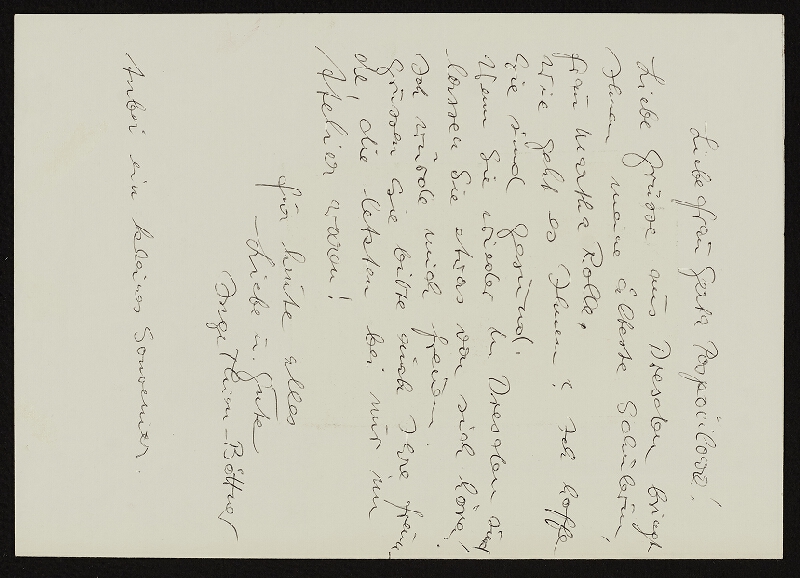 Liebe Frau Gerta Pospíšilová!
Liebe Grüsse aus Dresden bringt
Ihnen meine älteste Schülerin,
Frau Martha Kolbe,
Wie geht es Ihnen? Ich hoffe
Sie sind gesund.
Wenn Sie wieder in Dresden sind
lassen Sie etwas von sich hören!
Ich würde mich freuen.
Grüssen Sie bitte auch Ihre Freun-
de, die letzten bei mir im
Atelier waren!
Für heute alles
Liebe u. Gute
Inge Thiess-Böttner
Anbei ein kleines Souvenier.